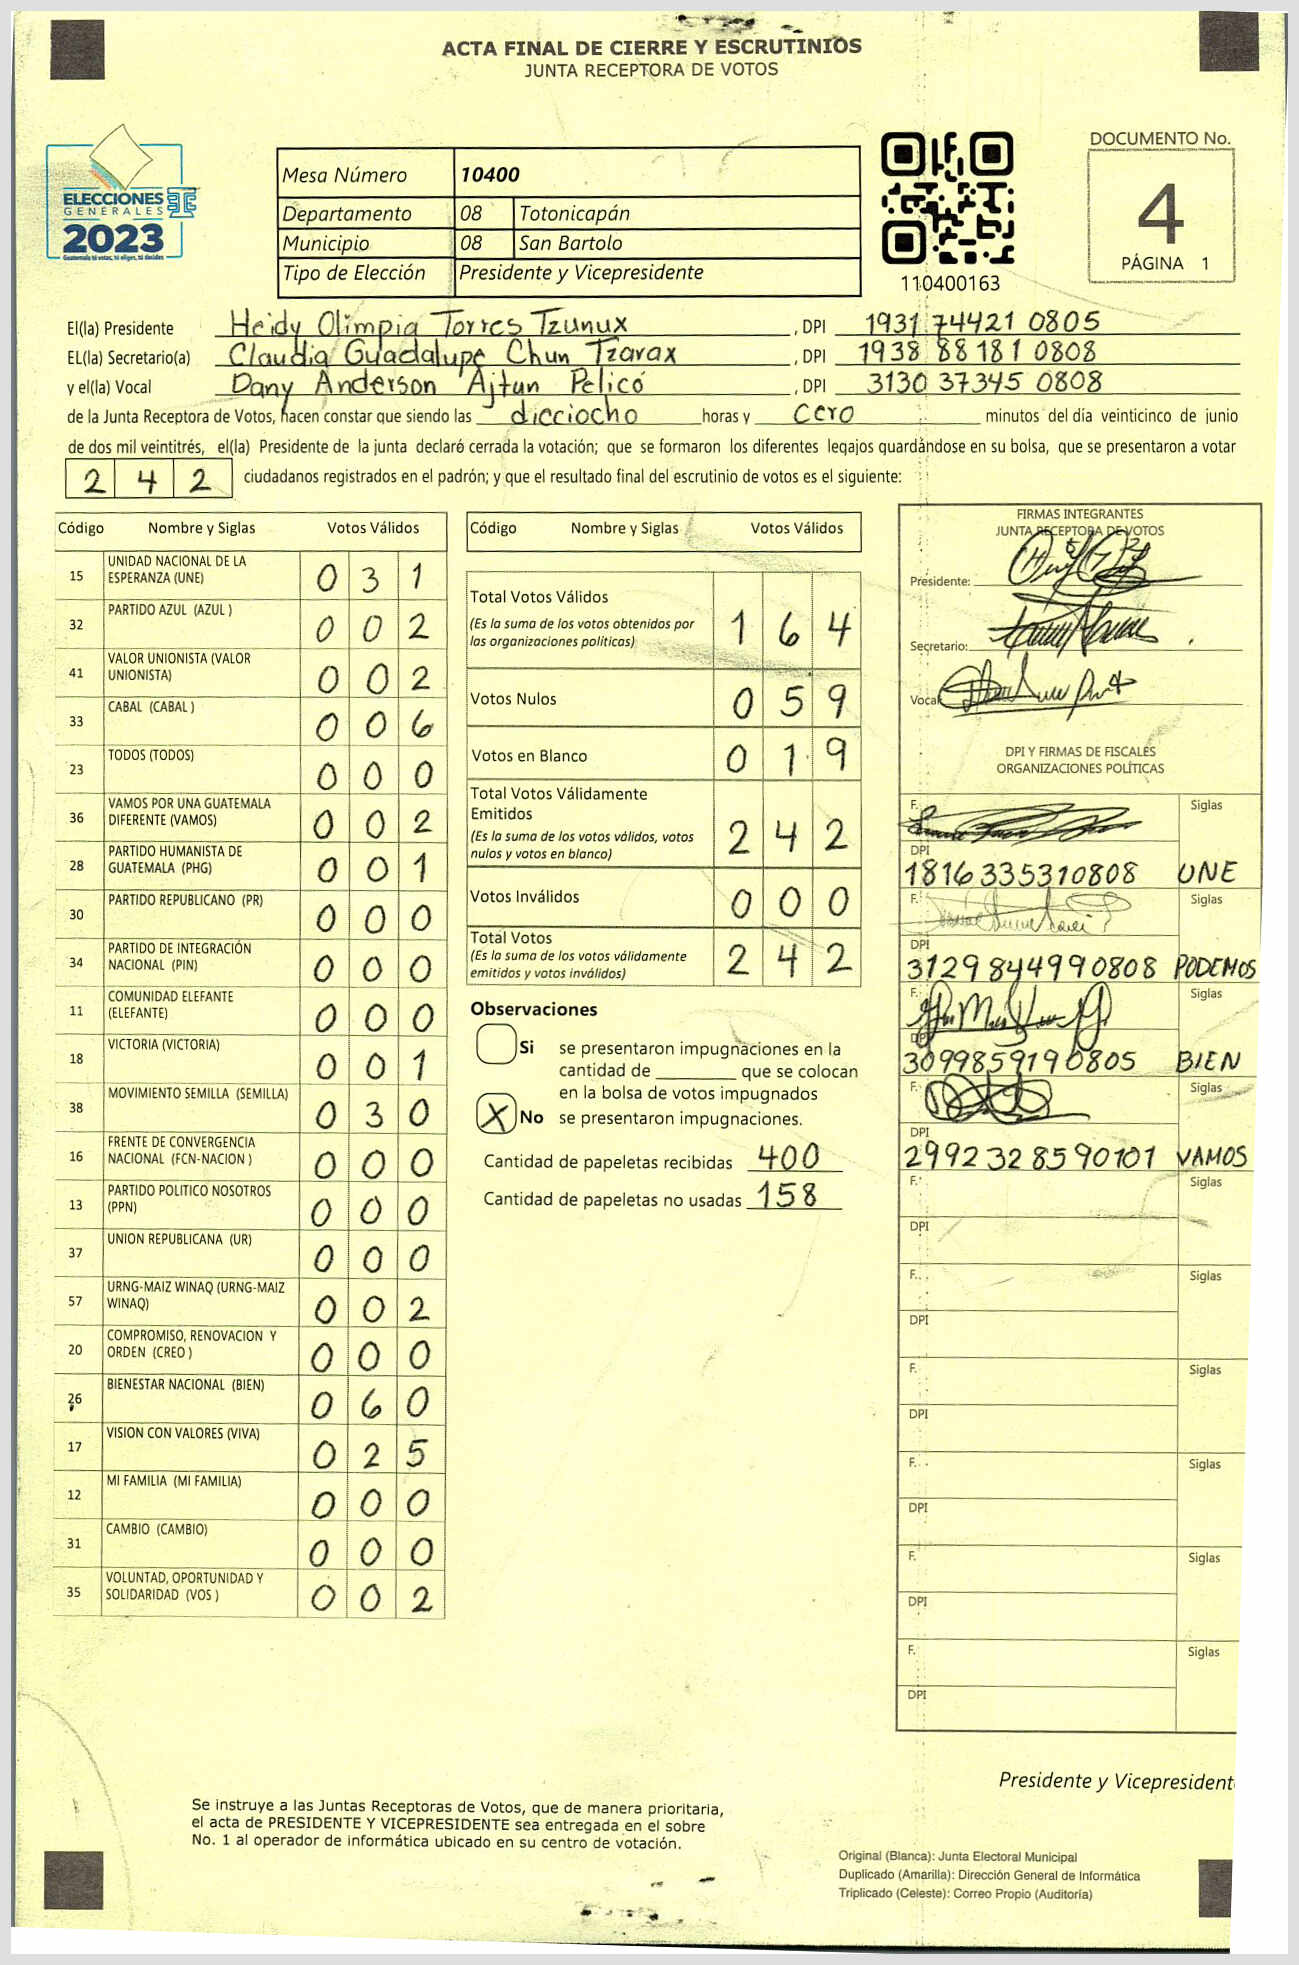 ACTA FINAL DE CIERRE Y ESCRUTINIOS
JUNTA RECEPTORA DE VOTOS
ELECCIONES
GENERALES
2023
Guatemala tú votas, tú eliges, tú decides
Mesa Número 10400
Departamento 08 Totonicapán
Municipio 08 San Bartolo
Tipo de Elección Presidente y Vicepresidente
110400163
DOCUMENTO No.
4
PÁGINA 1
El(la) Presidente Heidy Olimpia Torres Tzunux , DPI 1931 74421 0805
EL(la) Secretario(a) Claudia Guadalupe Chun Tzarax , DPI 1938 88181 0808
y el(la) Vocal Dany Anderson Ajtun Pelicó , DPI 3130 37345 0808
de la Junta Receptora de Votos, hacen constar que siendo las dieciocho horas y cero minutos del día veinticinco de junio
de dos mil veintitrés, el(la) Presidente de la junta declaró cerrada la votación; que se formaron los diferentes legajos guardándose en su bolsa, que se presentaron a votar
2 4 2 ciudadanos registrados en el padrón; y que el resultado final del escrutinio de votos es el siguiente:
Código Nombre y Siglas Votos Válidos
15 UNIDAD NACIONAL DE LA ESPERANZA (UNE) 0 3 1
32 PARTIDO AZUL (AZUL ) 0 0 2
41 VALOR UNIONISTA (VALOR UNIONISTA) 0 0 2
33 CABAL (CABAL ) 0 0 6
23 TODOS (TODOS) 0 0 0
36 VAMOS POR UNA GUATEMALA DIFERENTE (VAMOS) 0 0 2
28 PARTIDO HUMANISTA DE GUATEMALA (PHG) 0 0 1
30 PARTIDO REPUBLICANO (PR) 0 0 0
34 PARTIDO DE INTEGRACIÓN NACIONAL (PIN) 0 0 0
11 COMUNIDAD ELEFANTE (ELEFANTE) 0 0 0
18 VICTORIA (VICTORIA) 0 0 1
38 MOVIMIENTO SEMILLA (SEMILLA) 0 3 0
16 FRENTE DE CONVERGENCIA NACIONAL (FCN-NACION ) 0 0 0
13 PARTIDO POLITICO NOSOTROS (PPN) 0 0 0
37 UNION REPUBLICANA (UR) 0 0 0
57 URNG-MAIZ WINAQ (URNG-MAIZ WINAQ) 0 0 2
20 COMPROMISO, RENOVACION Y ORDEN (CREO ) 0 0 0
26 BIENESTAR NACIONAL (BIEN) 0 6 0
17 VISION CON VALORES (VIVA) 0 2 5
12 MI FAMILIA (MI FAMILIA) 0 0 0
31 CAMBIO (CAMBIO) 0 0 0
35 VOLUNTAD, OPORTUNIDAD Y SOLIDARIDAD (VOS ) 0 0 2
Código Nombre y Siglas Votos Válidos
Total Votos Válidos 1 6 4
(Es la suma de los votos obtenidos por
las organizaciones políticas)
Votos Nulos 0 5 9
Votos en Blanco 0 1 9
Total Votos Válidamente
Emitidos 2 4 2
(Es la suma de los votos válidos, votos
nulos y votos en blanco)
Votos Inválidos 0 0 0
Total Votos 2 4 2
(Es la suma de los votos válidamente
emitidos y votos inválidos)
Observaciones
Si se presentaron impugnaciones en la
cantidad de ________ que se colocan
en la bolsa de votos impugnados
X No se presentaron impugnaciones.
Cantidad de papeletas recibidas 400
Cantidad de papeletas no usadas 158
FIRMAS INTEGRANTES
JUNTA RECEPTORA DE VOTOS
Presidente:
Secretario:
Vocal
DPI Y FIRMAS DE FISCALES
ORGANIZACIONES POLÍTICAS
F. Siglas
DPI
1816 335310808 UNE
F. Siglas
DPI
3129844990808 PODEMOS
F. Siglas
DPI
3099859190805 BIEN
F. Siglas
DPI
2992328590101 VAMOS
F. Siglas
DPI
F. Siglas
DPI
F. Siglas
DPI
F. Siglas
DPI
F. Siglas
DPI
F. Siglas
DPI
Presidente y Vicepresident
Se instruye a las Juntas Receptoras de Votos, que de manera prioritaria,
el acta de PRESIDENTE Y VICEPRESIDENTE sea entregada en el sobre
No. 1 al operador de informática ubicado en su centro de votación.
Original (Blanca): Junta Electoral Municipal
Duplicado (Amarilla): Dirección General de Informática
Triplicado (Celeste): Correo Propio (Auditoría)